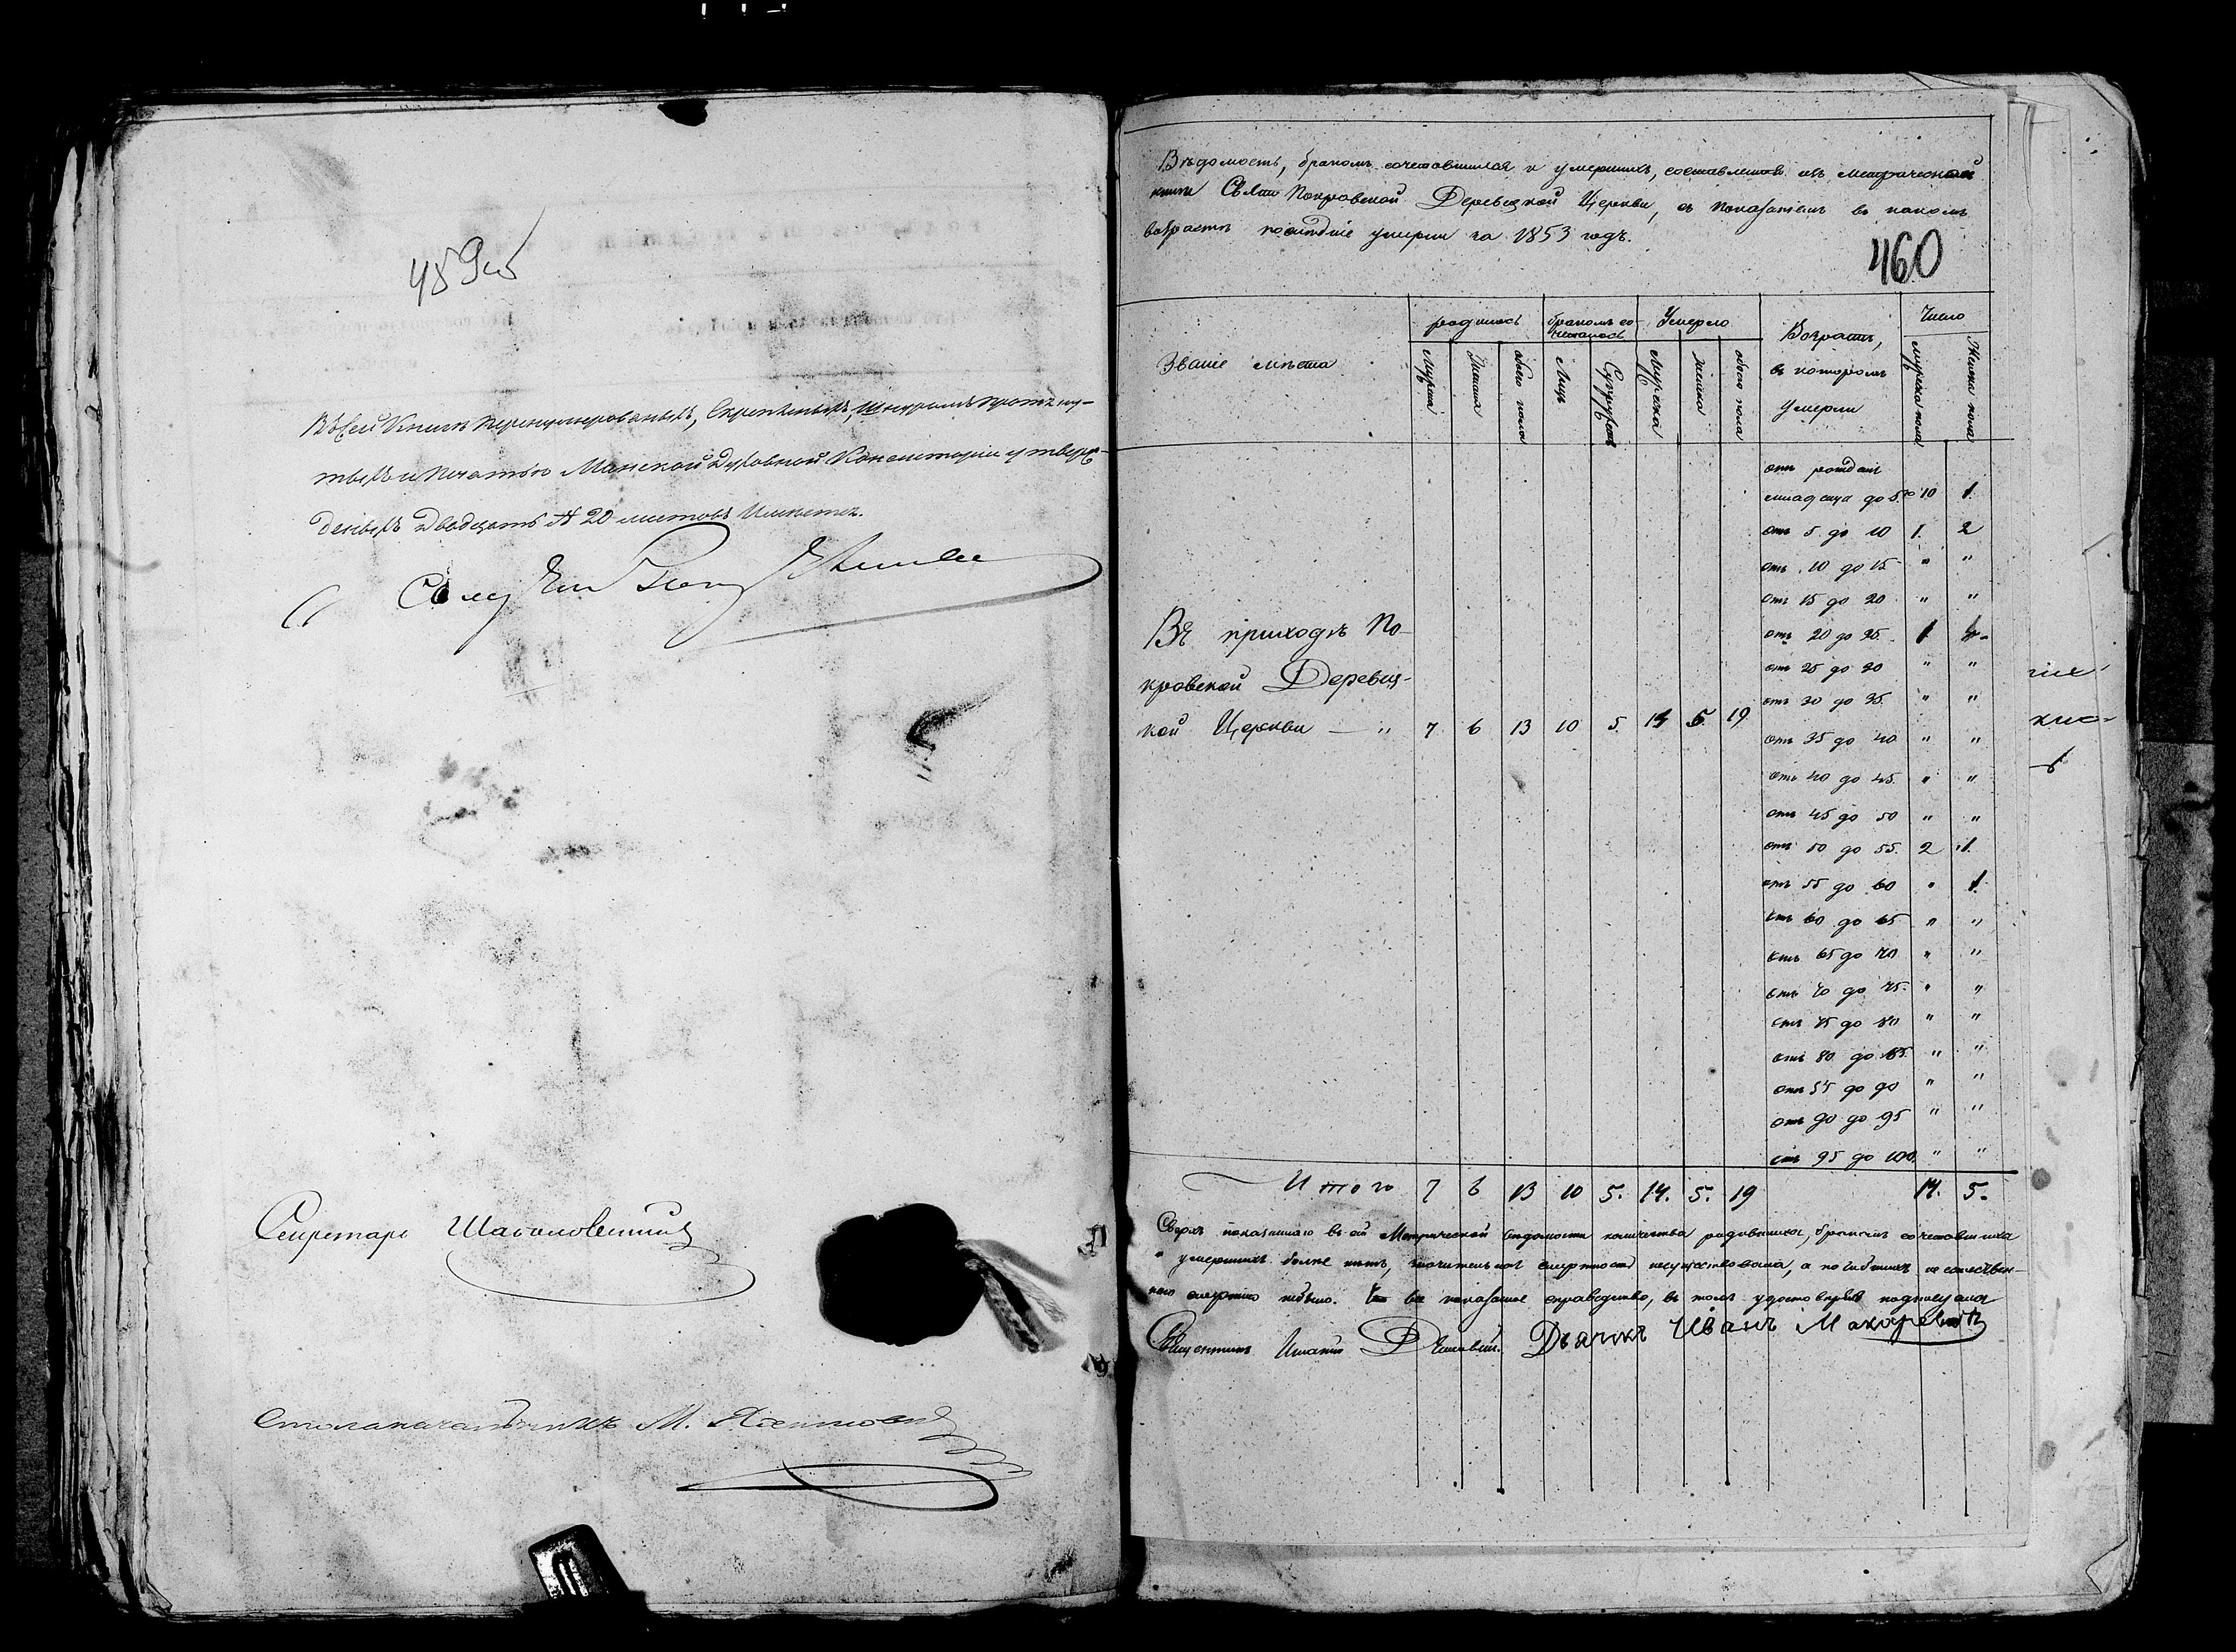 459 об
Въ сей Книгѣ перенумерованыхъ, скрепленыхъ, шнуромъ протяну-
тыхъ и печатью Минской Духовной Консисторіи утверж-
деныхъ двадцать # 20 листовъ имѣетъ.
Секретарь
Столоначальникъ М.
Вѣдомость, бракомъ сочетавшихся и умершихъ, составленная изъ метрической
книги Свято Покровской Деревецкой Церкви, съ показаніемъ въ какомъ
возрастѣ послѣдніе умерли за 1853 годъ.
460
Званіе мѣста
родилось
бракомъ со-
четалось
Умерло
Возрастъ,
въ которомъ
умерли
Число
Мужеска
Женска
обоего пола
Лицъ
Супружествъ
Мужска
женска
обоего пола
мужска пола
Женска пола
отъ рожден
младенца до 5 10 1.
отъ 5 до 10 1. 2
отъ 10 до 15 " "
отъ 15 до 20 " "
отъ 20 до 25 1
отъ 25 до 30 " "
отъ 30 до 35 " "
отъ 35 до 40 " "
отъ 40 до 45 " "
отъ 45 до 50 " "
отъ 50 до 55 2 1.
отъ 55 до 60 " 1
отъ 60 до 65 " "
отъ 65 до 70 " "
отъ 70 до 75 " "
отъ 75 до 80 " "
отъ 80 до 85 " "
отъ 85 до 90 " "
отъ 90 до 95 " "
отъ 95 до 100 " "
Въ приходѣ По-
кровской Деревец-
кой Церкви — " 7 6 13 10 5 14 5 19
Итого 7 6 13 10 5. 14. 5. 19 14. 5.
Сверхъ показаннаго въ сей Метрической вѣдомости количества родившихся, бракомъ сочетавшихся
и умершихъ болѣе нѣтъ, значительной смертности несуществовало, а погибшихъ неестествен-
ною смертію небыло. все показаное справедливо, въ томъ удостовѣряя подписуемся
Священникъ Игнатій Дьячекъ Иванъ Макаревичъ